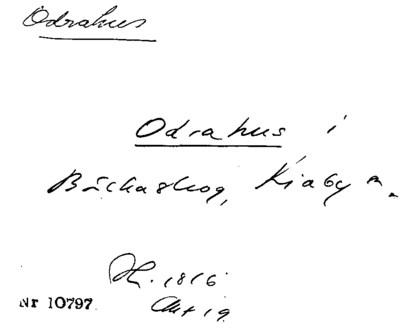 Odrahus
Odrahus i
Bäckaskog, Kiaby n.
H. 1816
Akt 19.
Nr 10797